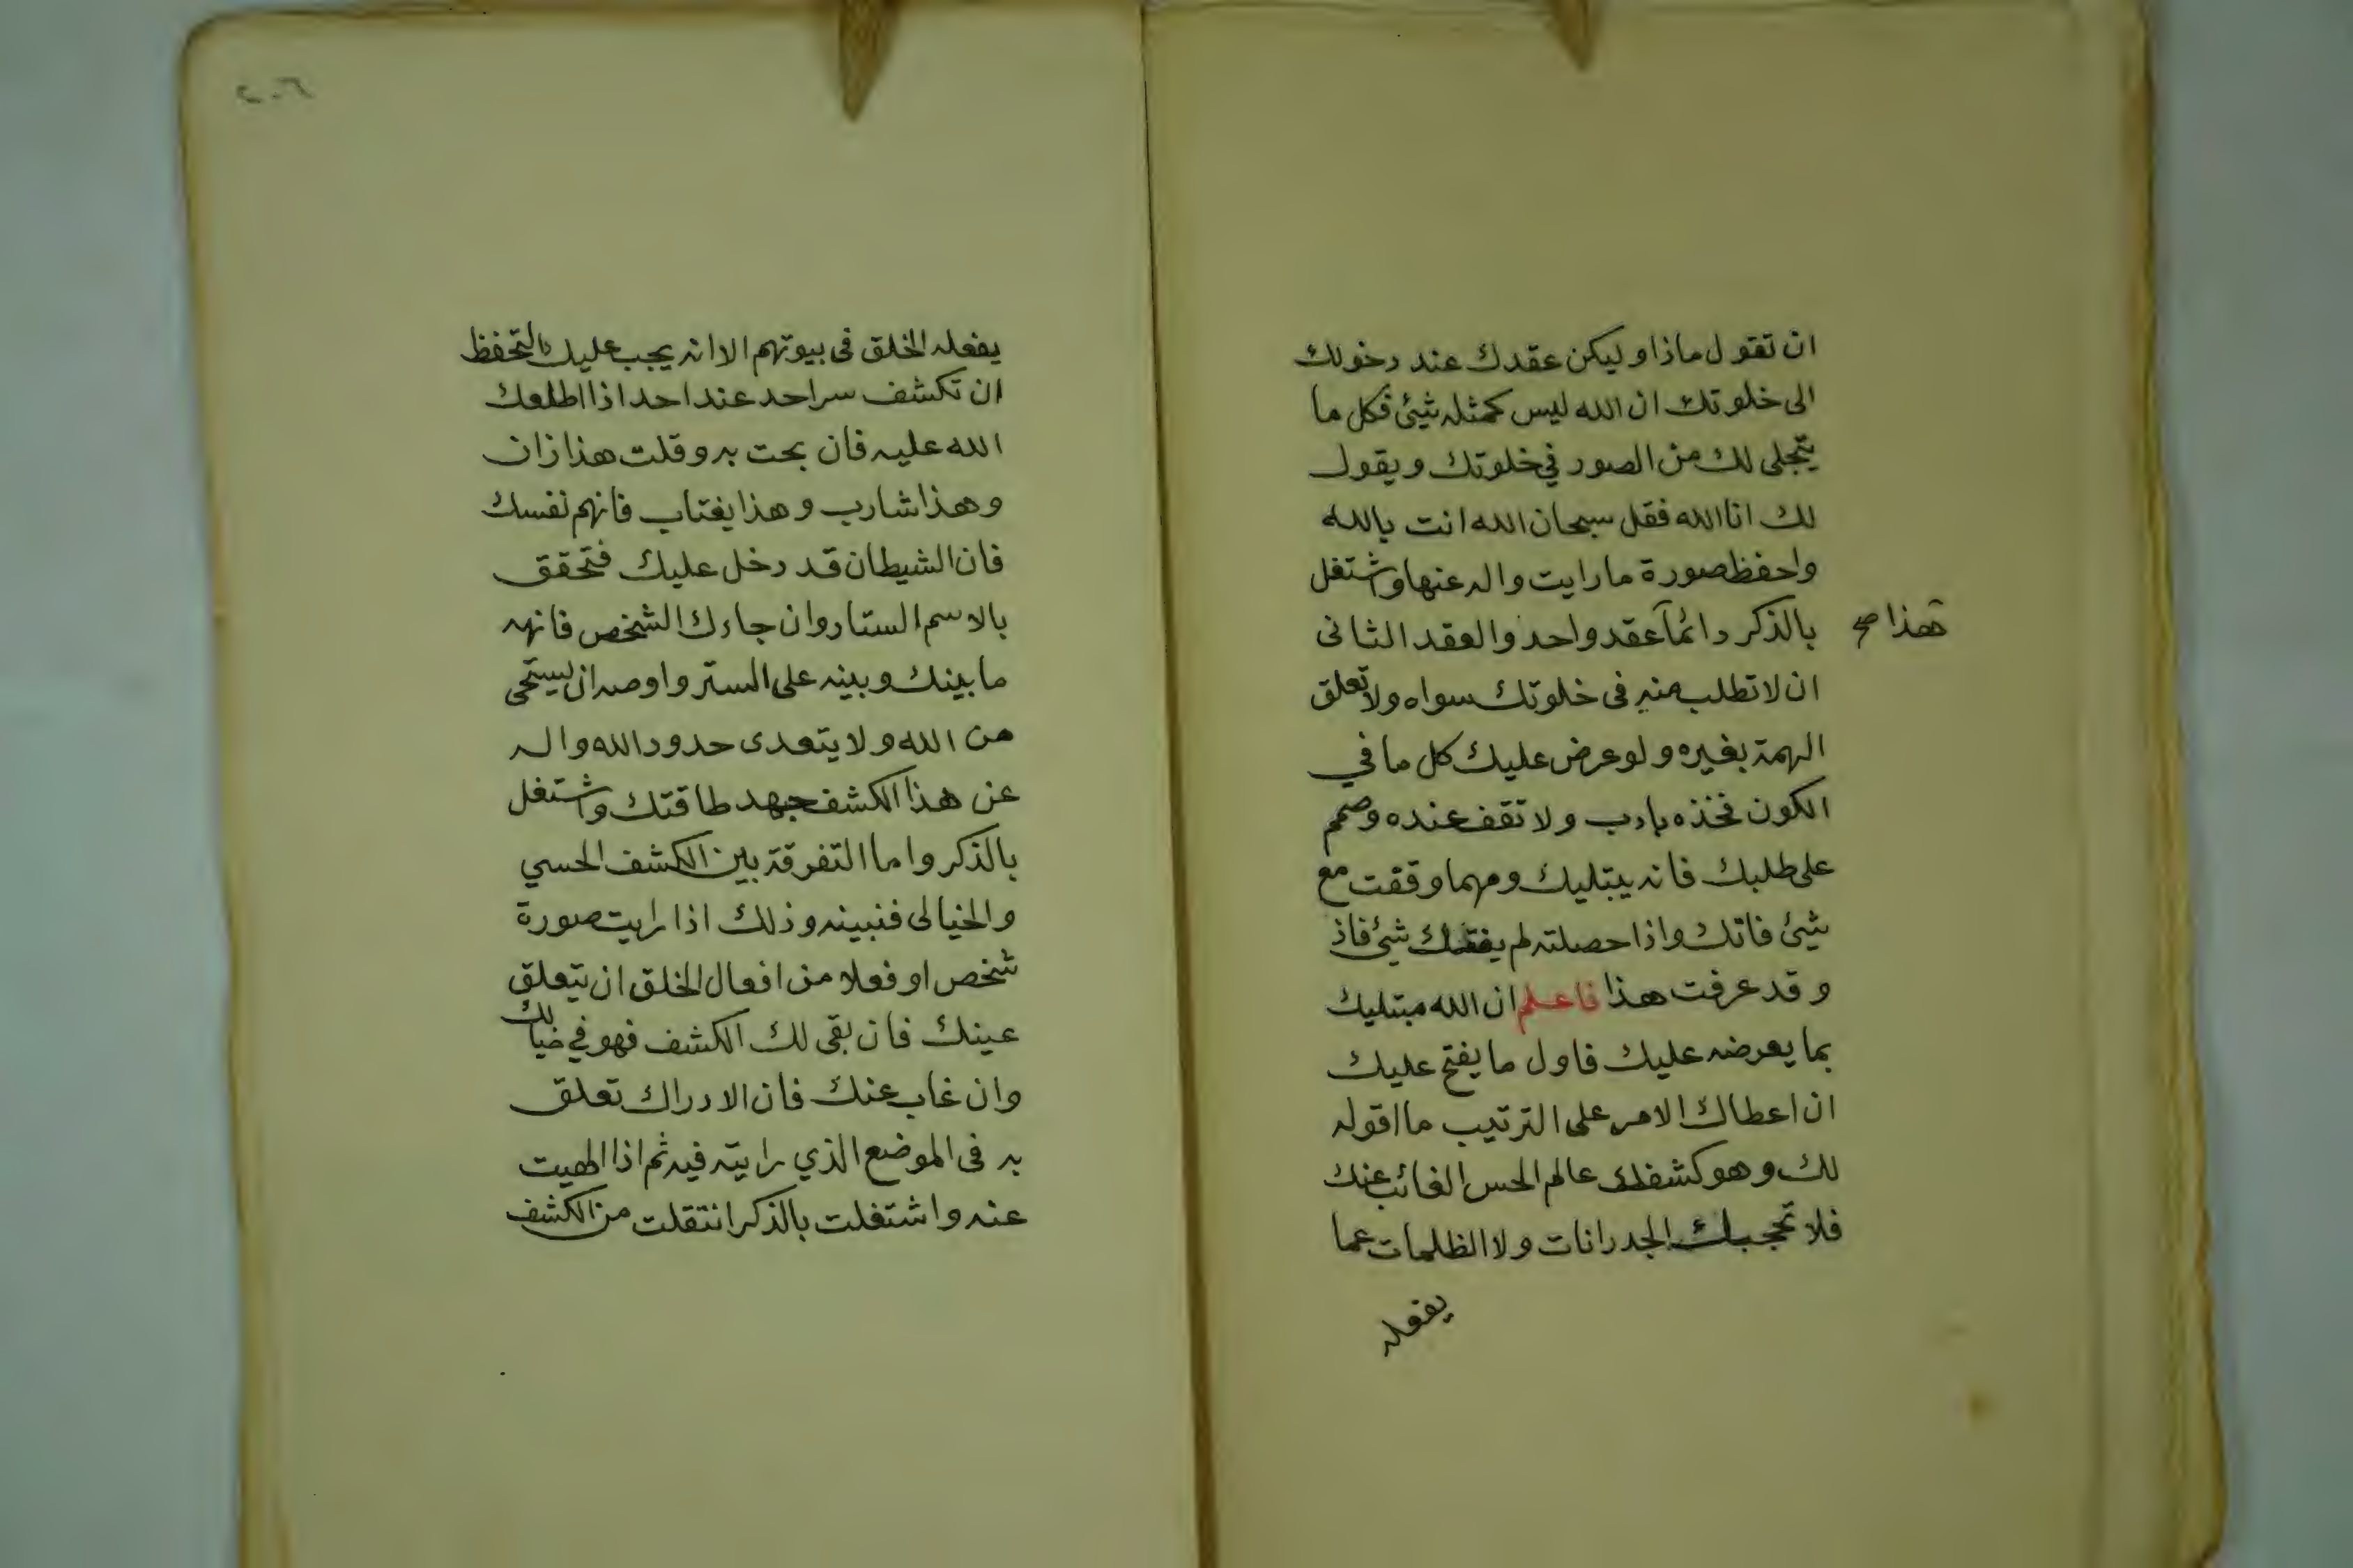 ان تقول ماذا وليكن عقدك عند دخولك
الى خلوتك ان الله ليس كمثله شيئ فكل ما
يتجلى لك من الصور في خلوتك ويقول
لك انا الله فقل سبحان الله انت بالله
واحفظ صورة ما رايت واله عنها واشتغل
بالذكر دائمآ عقد واحد والعقد الثانى
فهذا صح
ان لا تطلب منه فى خلوتك سواه ولا تعلق
الهمة بغيره ولو عرض عليك كل ما في
الكون فخذه بادب ولا تقف عنده وصمم
على طلبك فانه يبتليك ومهما وقفت مع
شيئ فاتك واذا حصلته لم يفتك شيئ فاذ
وقد عرفت هذا فاعلم ان الله مبتليك
بما يعرضه عليك فاول ما يفتح عليك
ان اعطاك الامر على الترتيب ما اقوله
لك وهو كشفك عالم الحس الغائب عنك
فلا تحجبك الجدرانات ولا الظلمات عما
يفعله
٢٠٦
يفعله الخلق فى بيوتهم الا انه يجب عليك بالتحفظ
ان تكشف سر احد عند احد اذا اطلعك
الله عليه فان بحت به وقلت هذا زان
وهذا شارب وهذا يغتاب فاتهم نفسك
فان الشيطان قد دخل عليك فتحقق
بالاسم الستار وان جاءك الشخص فانهه
ما بينك وبينه على الستر واوصه ان يستحى
من الله ولا يتعدى حدود الله واله
عن هذا الكشف جهد طاقتك واشتغل
بالذكر واما التفرقة بين الكشف الحسي
والخيالى فنبينه وذلك اذا رايت صورة
شخص او فعلا من افعال الخلق ان تيعلق
عينك فان بقى لك الكشف فهو في خيالك
وان غاب عنك فان الادراك تعلق
به فى الموضع الذي رايته فيه ثم اذا الهيت
عنه واشتغلت بالذكر انتقلت من الكشف